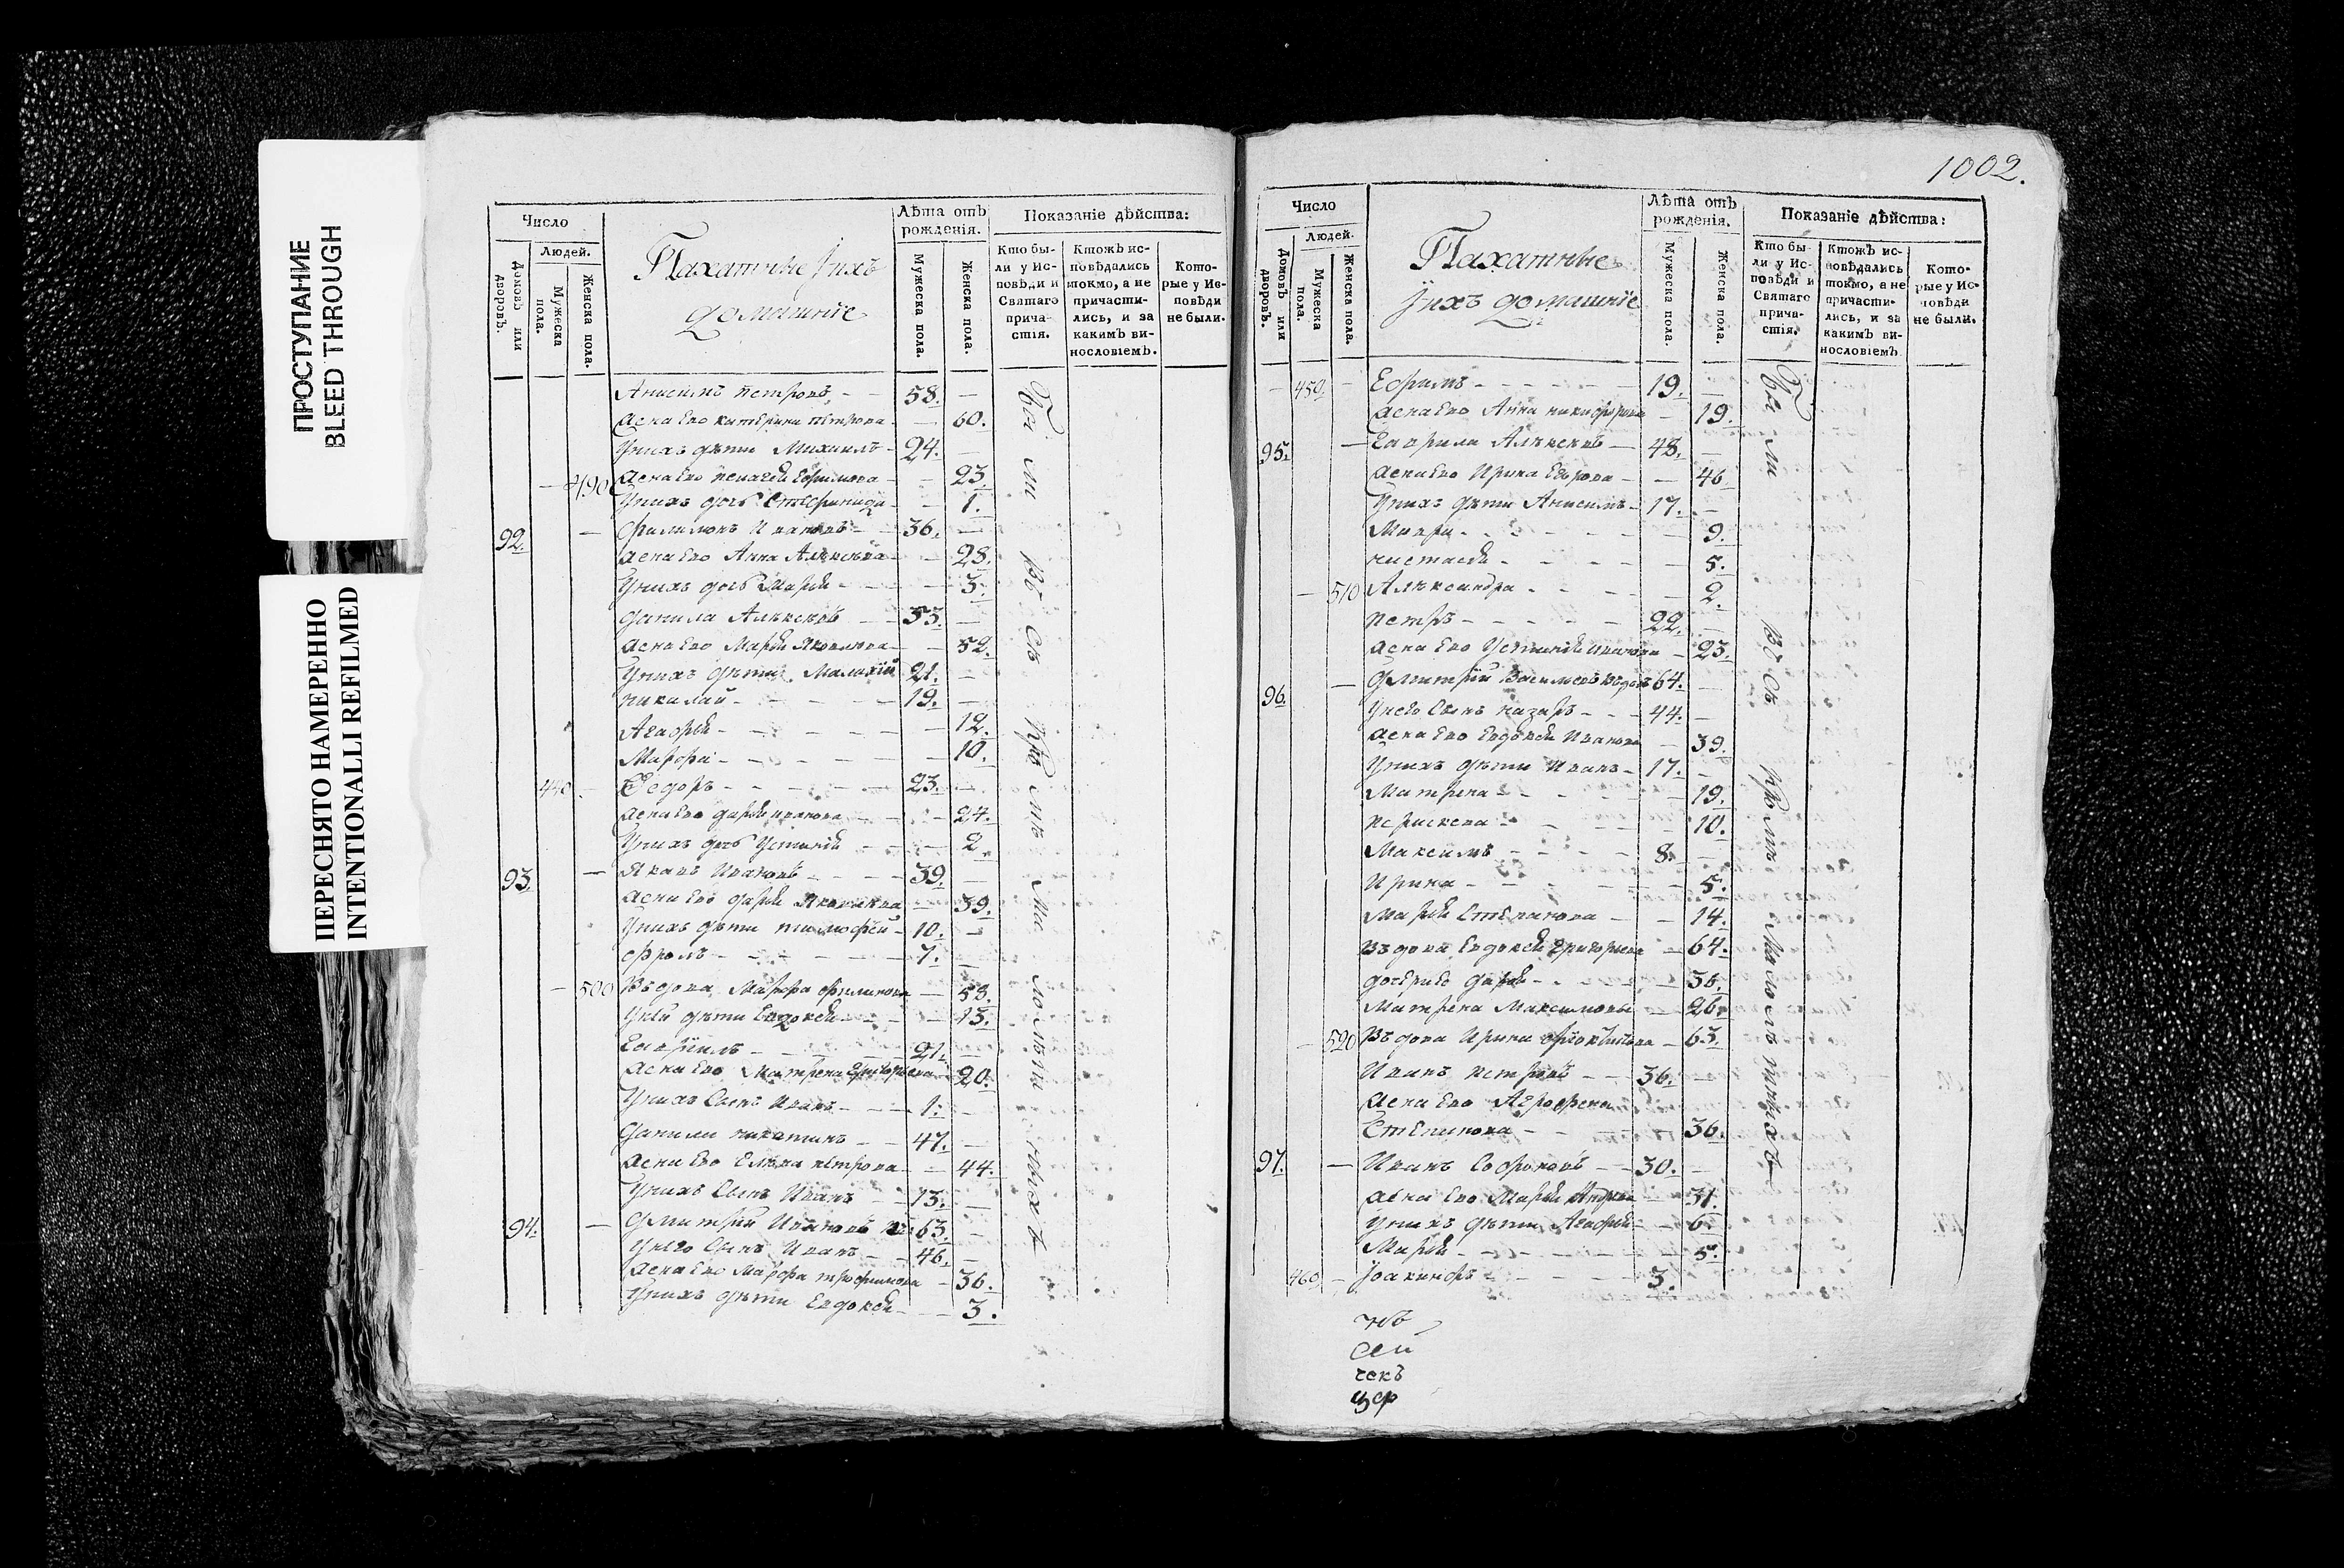 ПРОСТУПАНИЕ
BLEED THROUGH
ПЕРЕСНЯТО НАМЕРЕННО
INTENTIONALLI REFILMED
Число
Людей.
Домовъ или дворовъ.
Мужеска пола.
Женска пола.
Пахатные Ӱихъ
домашнїе
Лѣта отъ рожденія.
Мужеска пола.
Женска пола.
Показаніе дѣйства:
Кто были у Исповѣди и Святаго причастія.
Ктожъ исповѣдались токмо, а не причастились, и за какимъ винословіемъ.
Которые у Исповѣди не были.
Анисимъ петровъ 58.
жена Ево катерина петрова 60.
Унихъ дѣти Михаилъ 24.
490 жена Ево пелагея Ефимова 23.
Унихъ дочь 1.
92. Филимонъ Ивановъ 36.
жена Ево Анна Алексѣева 28.
Унихъ дочь Марья 3.
данила Алексѣевъ 53.
жена Ево Марья Яковлева 52.
Унихъ дѣти Малахїй 21.
николай 19.
Агафья 12.
Марфа 10.
440 Ѳедоръ 23.
жена Ево дарья иванова 24.
Унихъ дочь Устинья 2
93. Яковъ Ивановъ 39
жена Ево дарья 39.
Унихъ дѣти тимофей 10.
фролъ 7.
500 Въдова Марфа филипова 58.
Уней дѣти Евдокея 13.
Гаврїилъ 21.
жена Ево Матрена Григорьева 20.
Унихъ Сынъ Иванъ 1.
данила никитинъ 47.
жена Ево Елена петрова 44.
Унихъ Сынъ Иванъ 13.
94. дмитрїй Ивановъ 63.
Унего Сынъ Иванъ 46.
жена Ево Марфа трофимова 36.
Унихъ дѣти Евдокея 3.
1002.
Число
Людей.
Домовъ или дворовъ.
Мужеска пола.
Женска пола.
Пахатные
Ӱихъ домашнїе
Лѣта отъ рожденія.
Мужеска пола.
Женска пола.
Показаніе дѣйства:
Кто были у Исповѣди и Святаго причастія.
Ктожъ исповѣдались токмо, а не причастились, и за какимъ винословіемъ.
Которые у Исповѣди не были.
450 Ефимъ 19.
жена Ево Анна никифорова 19.
95. Гаврила Алексѣевъ 48.
жена Ево Ирина Егорова 46
Унихъ дѣти Анисимъ 17.
Мавра 9.
настасья 5.
510 Александра 2.
петръ 22.
жена Ево Устинья иванова 23.
96. дмитрїй Васильевъ въдовъ 64.
Унего Сынъ назаръ 44.
жена Ево Евдокея Иванова 39.
Унихъ дѣти Иванъ 17.
Матрена 19.
перасковя 10.
Максимъ 8.
Ирина 5.
Марья Степанова 14.
Въдова Евдокея Григорьева 64.
дочь Ево дарья 36.
Матрена Максимова 26.
520 Въдова Ирина 63.
Иванъ петровъ 36.
жена Ево Аграфена
Степанова 36.
97. Иванъ Софроновъ 30.
жена Ево Марья 31.
Унихъ дѣти Агафья 6.
Марья 5.
460 Іоакинфъ 3.